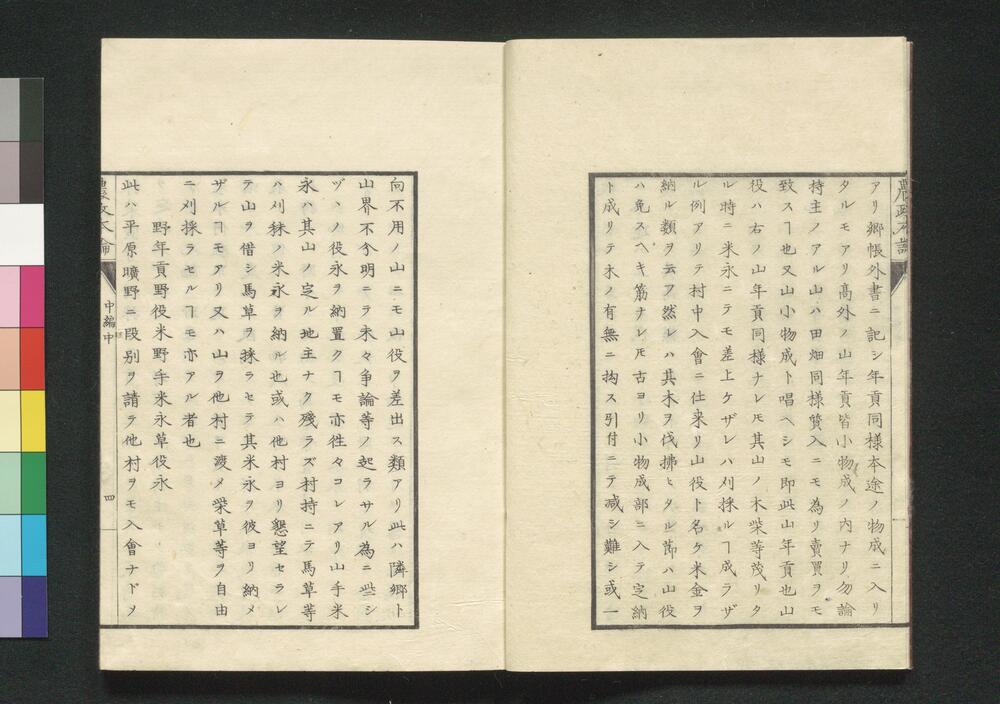 アリ郷帳外書ニ記シ年貢同様本途ノ物成ニ入リ
タルモアリ高外ノ山年貢皆小物成ノ内ナリ勿論
持主ノアル山ハ田畑同様質入ニモ為リ賣買ヲモ
致スヿ也又山小物成ト唱ヘシモ即此山年貢也山
役ハ右ノ山年貢同様ナレ𪜈其山ノ木柴等茂リタ
ル時ニ米永ニテモ差上ケザレハ刈採ルヿ成ラザ
ル例アリテ村中入會ニ仕来リ山役ト名ケ米金ヲ
納ル類ヲ云フ然レハ其木ヲ伐拂ヒタル節ハ山役
ハ免スヘキ筋ナレ𪜈古ヨリ小物成部ニ入テ定納
ト成リテ木ノ有無ニ拘ス引付ニテ减シ難シ或一
向不用ノ山ニモ山役ヲ差出ス類アリ此ハ隣郷ト
山界不分明ニラ末々争論等ノ起ラサル為ニ些シ
ヅヽノ役永ヲ納置クヿモ亦徃々コレアリ山手米
永ハ其山ノ定ル地主ナク残ラズ村持ニテ馬草等
ハ刈秣ノ米永ヲ納ル也或ハ他村ヨリ懇望セラレ
テ山ヲ借シ馬草ヲ採ラセテ其米永ヲ彼ヨリ納メ
ザルヿモアリ又ハ山ヲ他村ニ渡メ柴草等ヲ自由
ニ刈採ラセルヿモ亦アル者也
野年貢野役米野手米永草役永
此ハ平原曠野ニ段別ヲ請ラ他村ヲモ入會ナドメ
農政本論
中編中
四